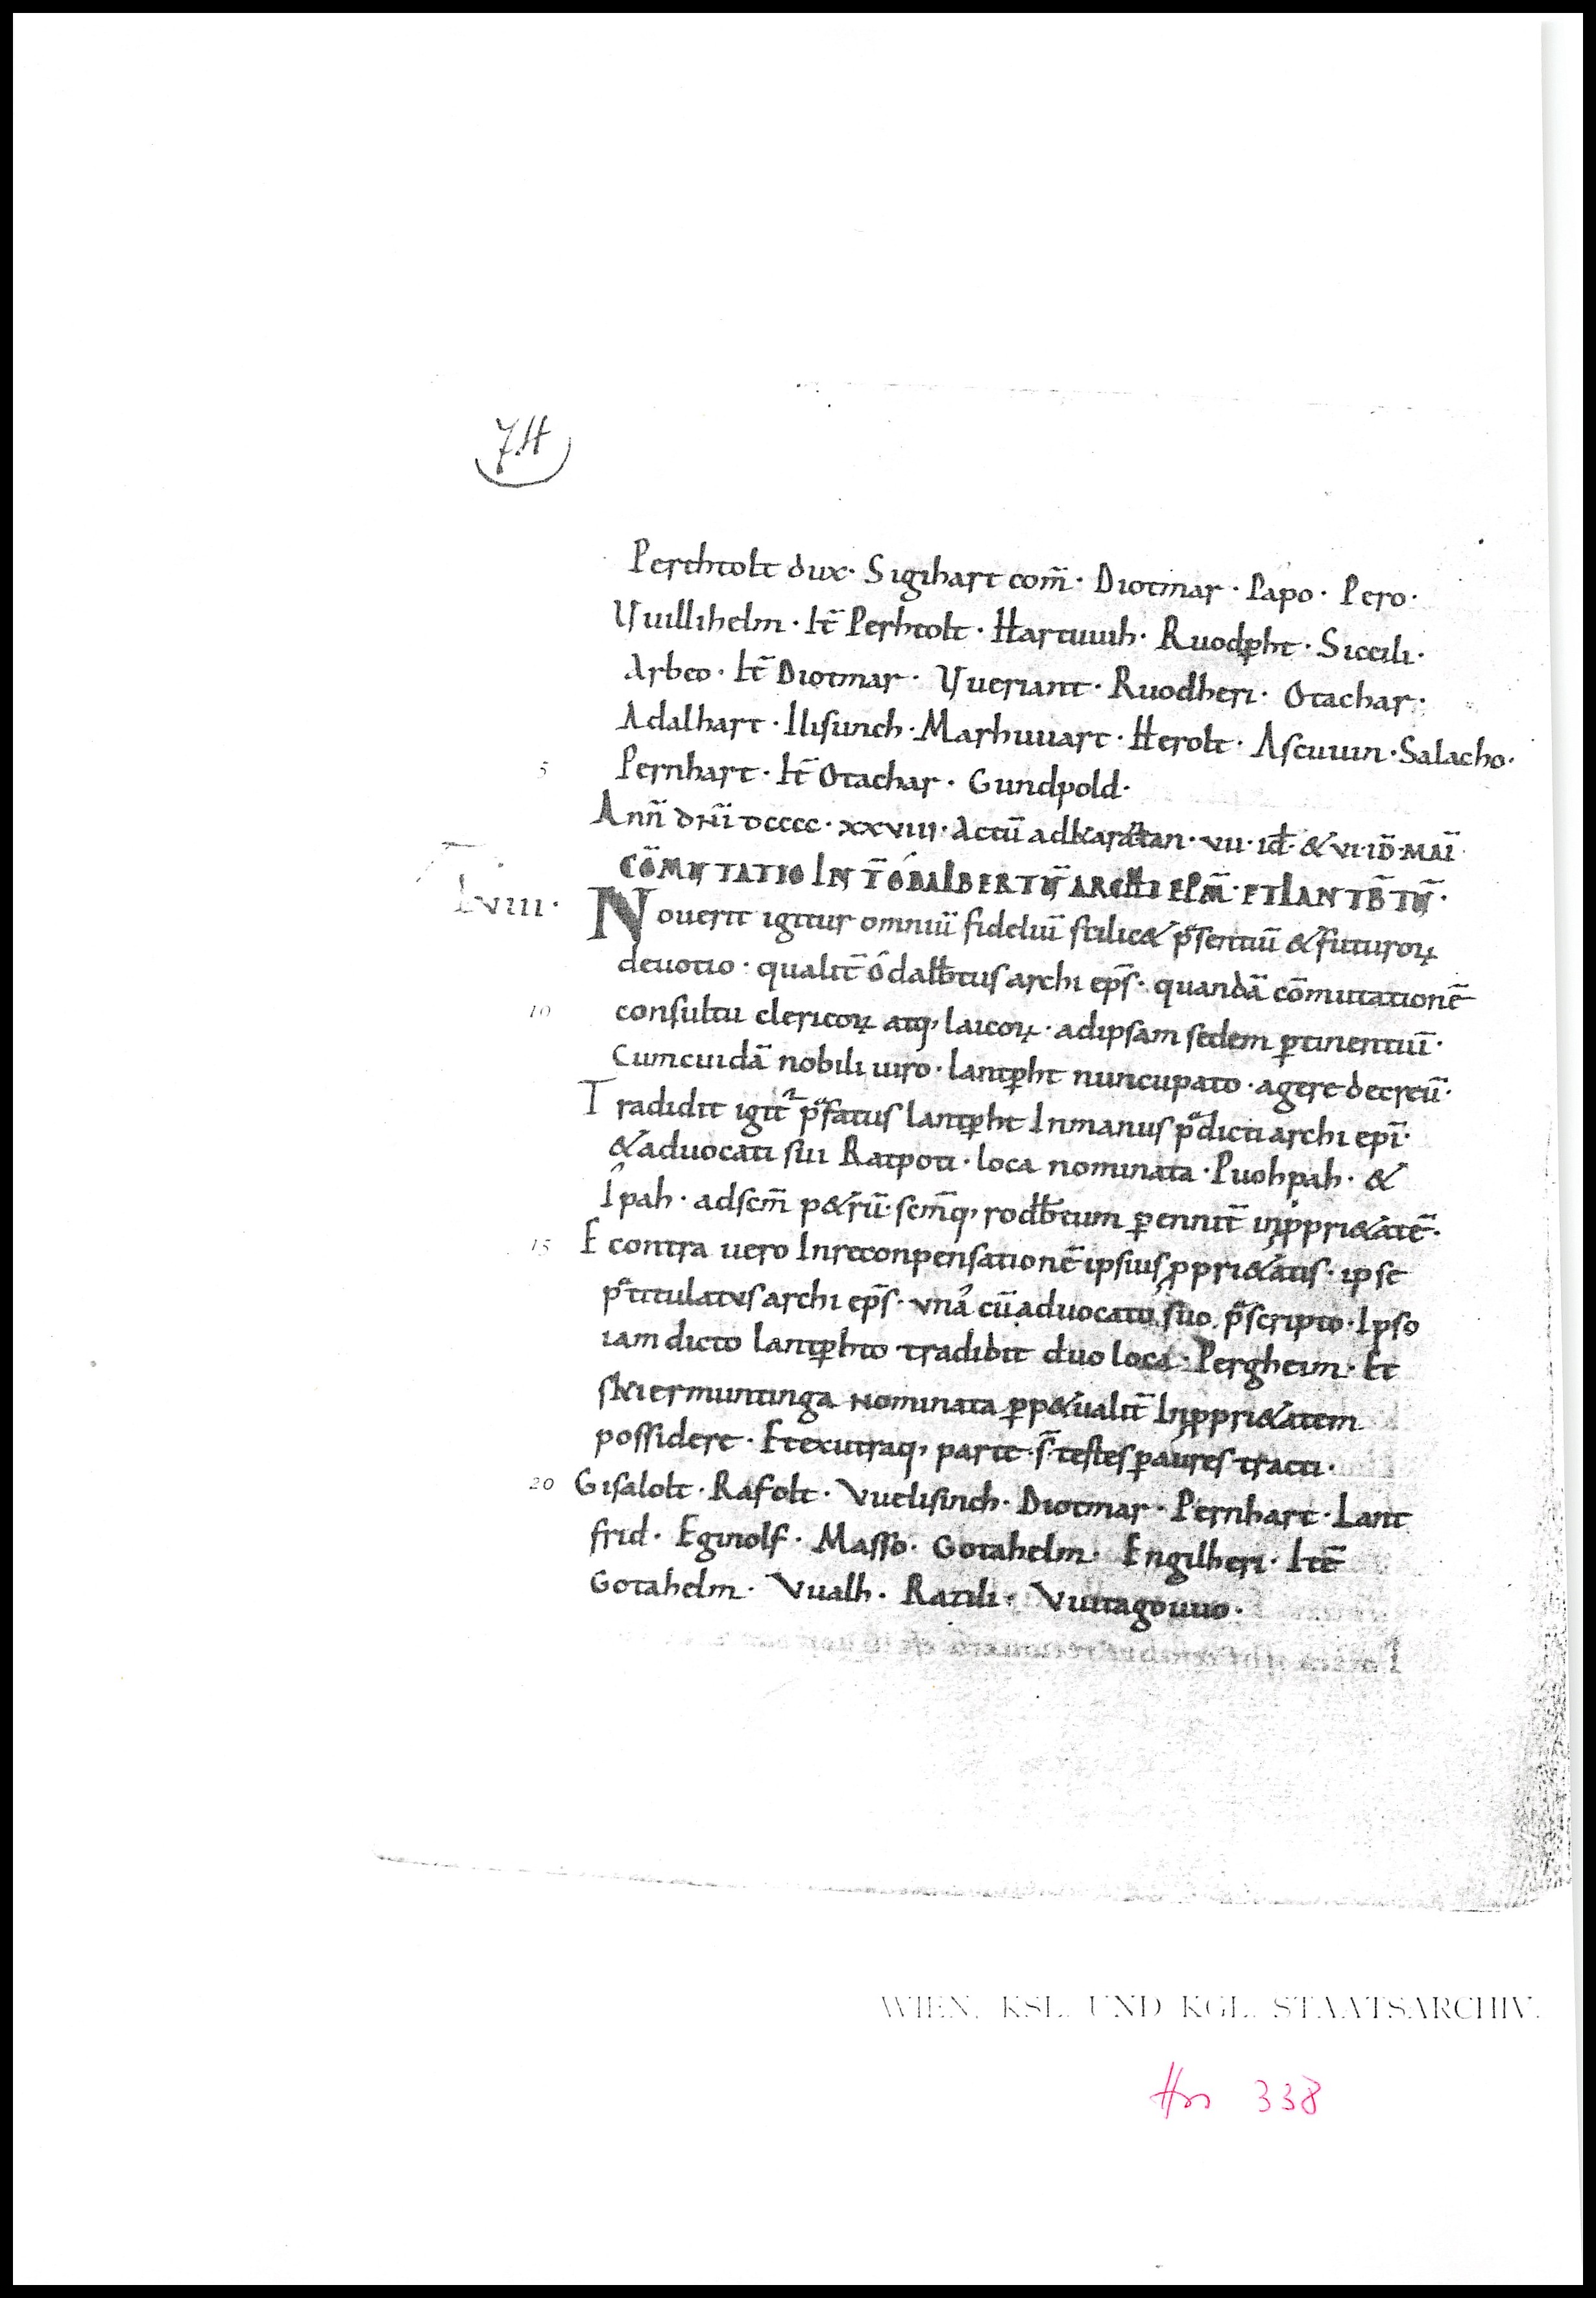 74
Perchtolt dux· Sigihart com̄· Diotmar· Papo· Pero·
Vuillihelm· It̄ Perhtolt· Hartuuih· Ruodꝑht· Siccili·
Arbeo· It̄ Diotmar· Vueriant· Ruodheri· Otachar·
Adalhart· Ilisunch· Marhuuart· Herolt· Ascuuin· Salacho·
5 Pernhart· It̄ Otachar· Gundpold·
Ann̄ dn̄i dcccc· xxviii· Actū ad vii· id̄· & vi· id̄· mai
CŌMVTATIO INT̄ ODALBERTV̄ ARCHI EPM̄· ET LANTB̄TV̄·
Lviii·
Nouerit igitur omniū fideliū scilic& p̄sentiū & futuroꝝ
deuotio· qualit̄ ódalb̄tus archi ep̄s· quandā cōmutationē
10 consultu clericoꝝ atq, laicoꝝ· adipsam sedem ꝑtinentiū·
Cumcuidā nobili uiro· lantꝑht nuncupato· agere decreū·
Tradidit igit᷑ p̄fatus lantꝑht Inmanus p̄dicti archi epī·
& aduocati sui Ratpoti· loca nominata· Puohpah· &
Ipah· adscm̄ p&rū· scm̄q, rodb̄tum ꝑennit̄ inꝓpri&atē·
15 E contra uero Inreconpensationē ipsius ꝓpri&atis· ipse
p̄titulatus archi ep̄s· vnā cū aduocato suo p̄scripto· Ipso
iam dicto lantꝑhto tradidit duo loca· Pergheim· Et
nominata ꝑp&ualit̄ Inꝓpri&atem
possidere· Etexutraq, parte· s̄· testes ꝑaures tracti·
20 Gisalolt· Rafolt· Vuelisinch· Diotmar· Pernhart· Lant
frid· Eginolf· Masso· Gotahelm· Engilheri· Itē
Gotahelm· Vualh· Ratili· Vuitagouuo·
WIEN, KSL. UND KGL. STAATSARCHIV.
338